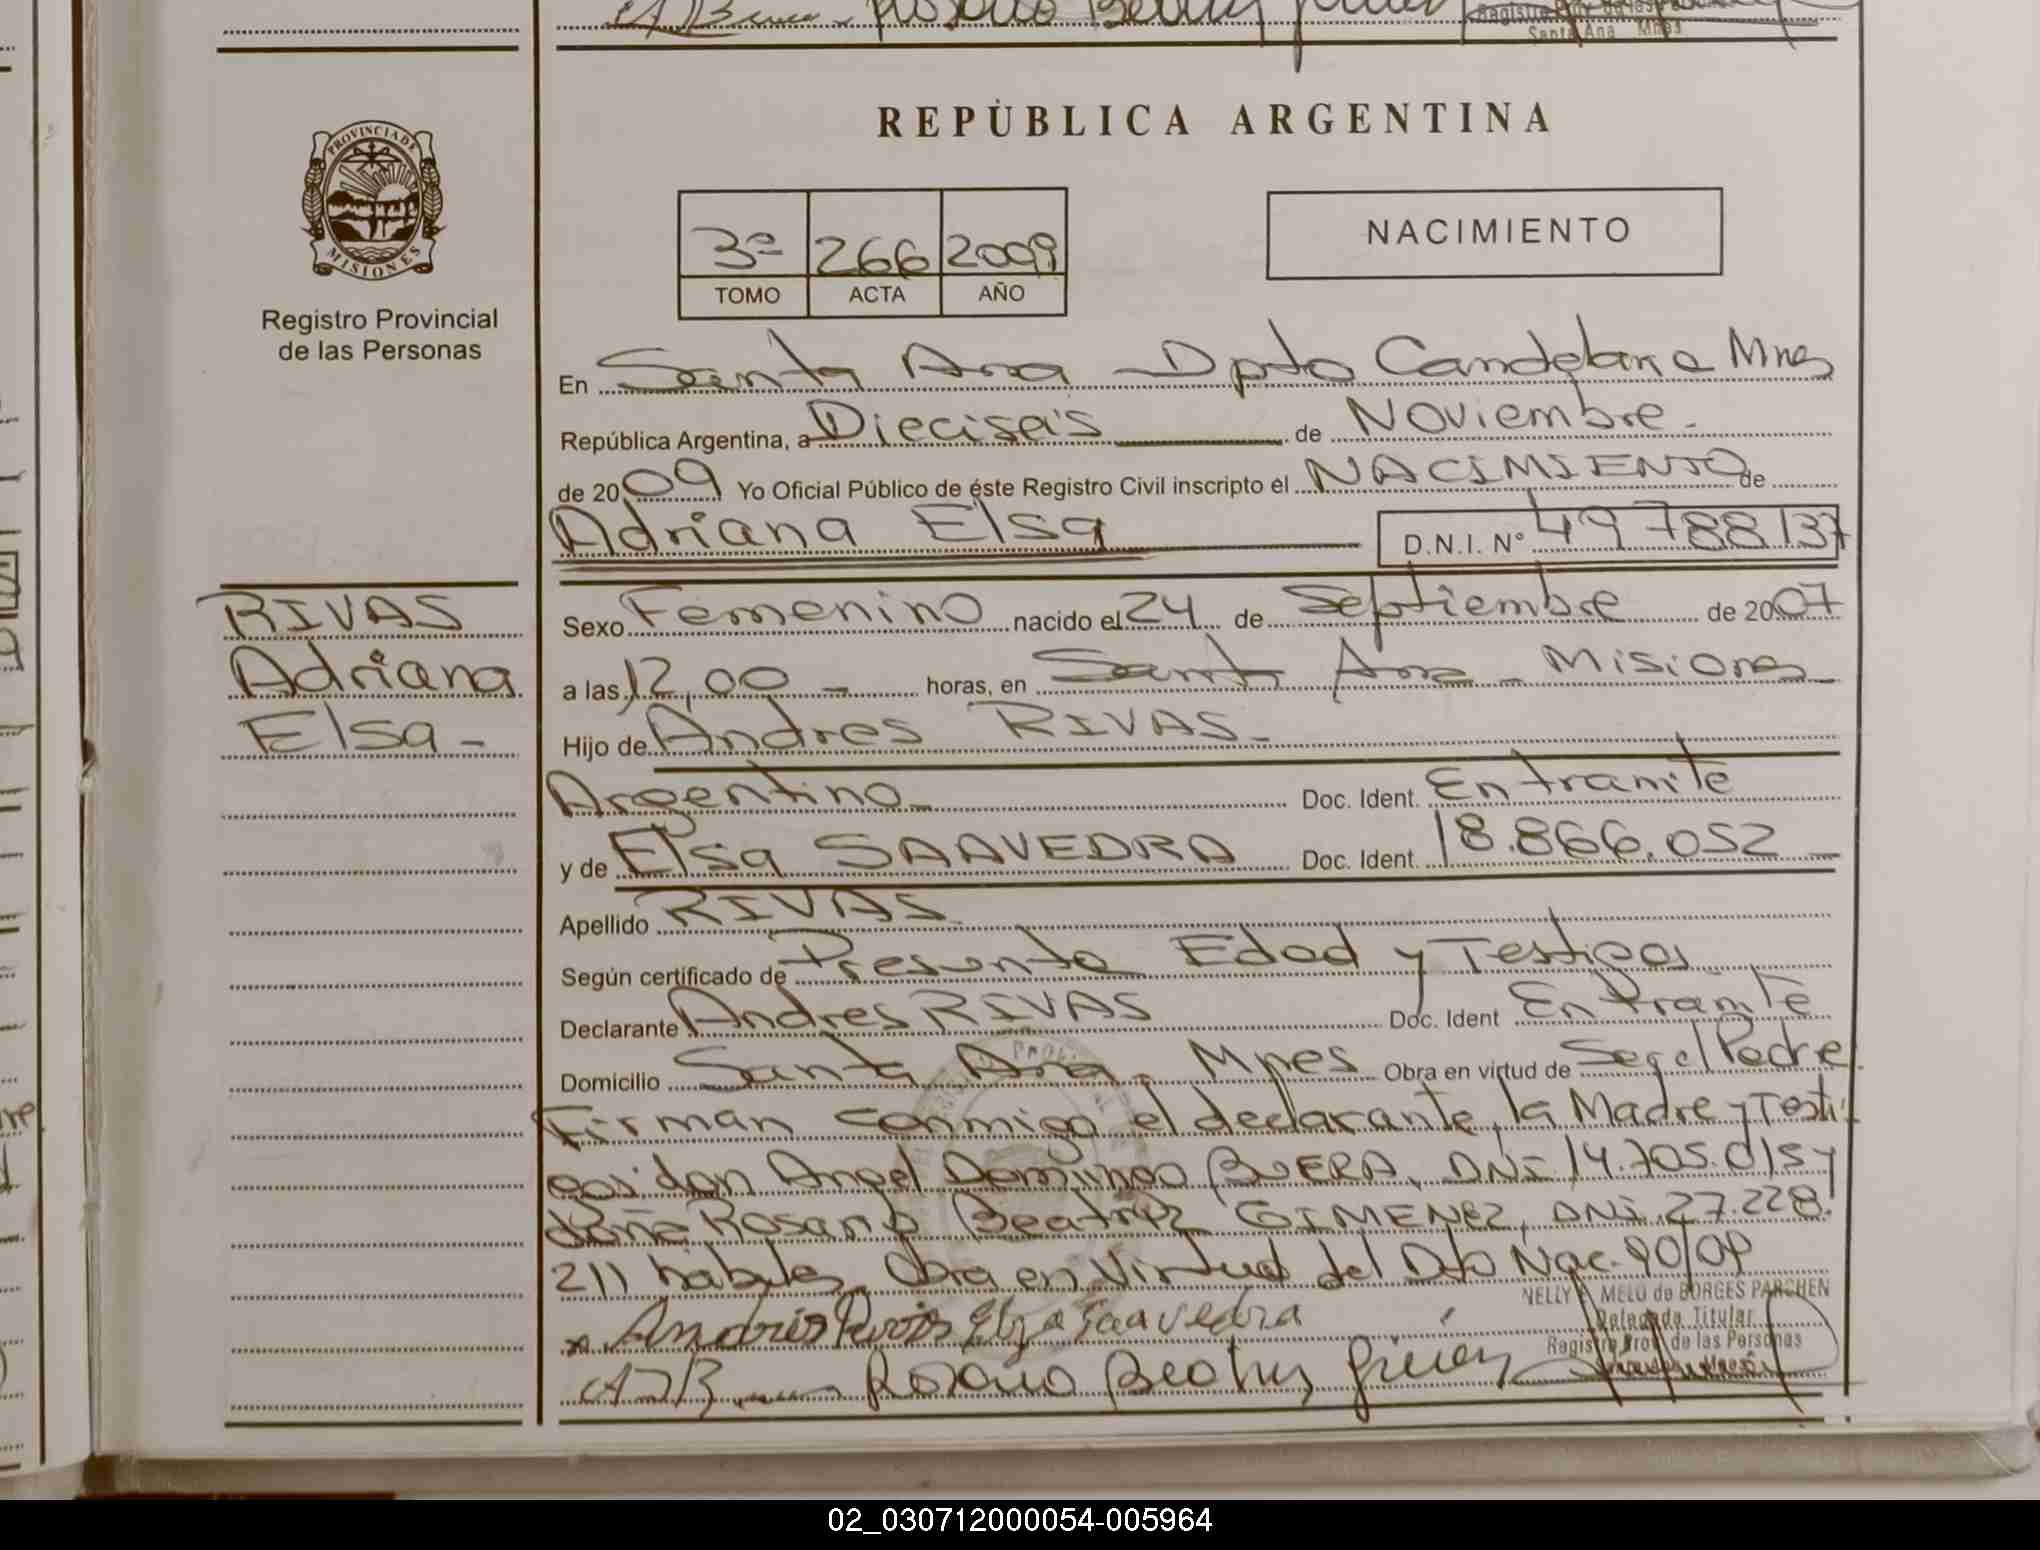 Santa Ana Mnes
REPÚBLICA ARGENTINA
PROVINCIA DE
MISIONES
Registro Provincial
de las Personas
3ª 266 2009
TOMO ACTA AÑO
NACIMIENTO
En Santa Ana - Dpto Candelaria Mnes
República Argentina, a Dieciseis de Noviembre -
de 2009 Yo Oficial Público de éste Registro Civil inscripto el NACIMIENTO de
Adriana Elsa D.N.I. N° 49788137
RIVAS
Adriana
Elsa -
Sexo Femenino nacido el 24 de Septiembre de 2007
a las 12,00 - horas, en Santa Ana - Misiones
Hijo de Andres RIVAS -
Argentino Doc. Ident. En tramite
y de Elsa SAAVEDRA Doc. Ident. 18.866.052
Apellido RIVAS
Según certificado de Presunta Edad y Testigos
Declarante Andres RIVAS Doc. Ident En Tramite
Domicilio Santa Ana - Mnes Obra en virtud de Ser el Padre.
Firman conmigo el declarante, la Madre y Testi-
gos: don Angel Domingo BUERA, DNI 14.705.015 y
doña Rosario Beatriz GIMENEZ, DNI. 27.228.
211 habiles. Obra en Virtud del Dto Nac. 90/09
NELLY E. MELO de BORGES PARCHEN
Delegada Titular
Registro Prov. de las Personas
Andrés Rivas Elsa Saavedra
Rosario Beatriz
02_030712000054-005964